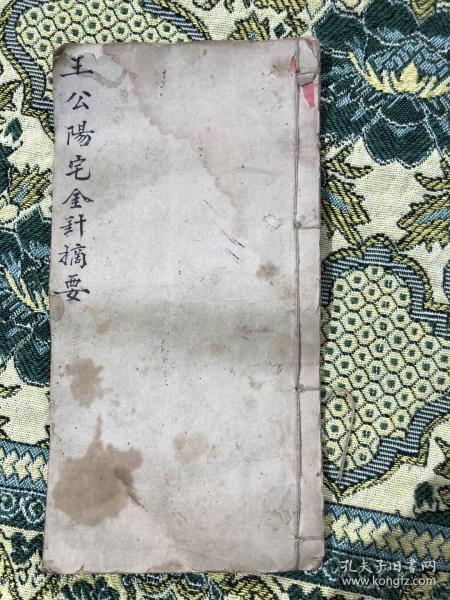 王公陽宅金針摘要
孔夫子旧书网
www.kongfz.com